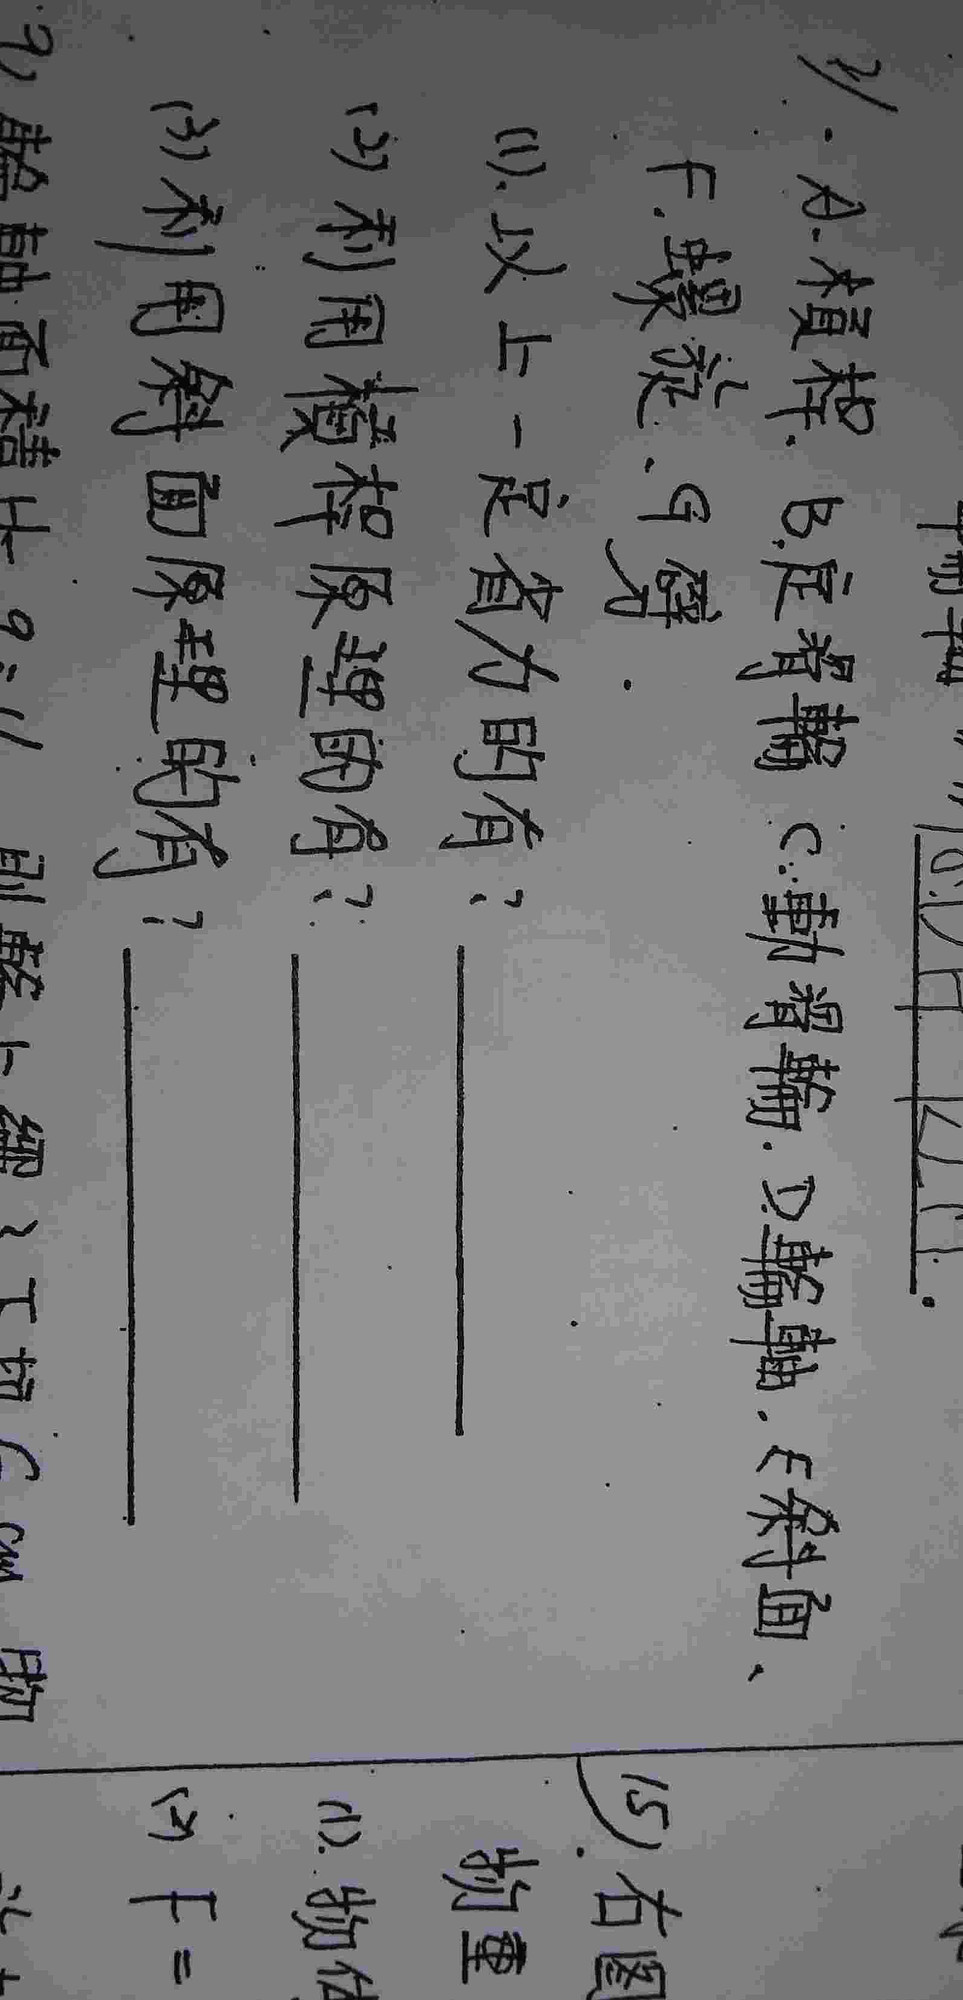 2/.A.槓桿.B.定滑輪 C.動滑輪.D.輪軸.E斜面、
F.螺旋.G劈.
(1).以上一定省力的有?
(2)利用槓桿原理的有?
(3)利用斜面原理的有?
輪軸面積比9:1/則輪上繩
15).右圖
物重
(1).物
(2)F=